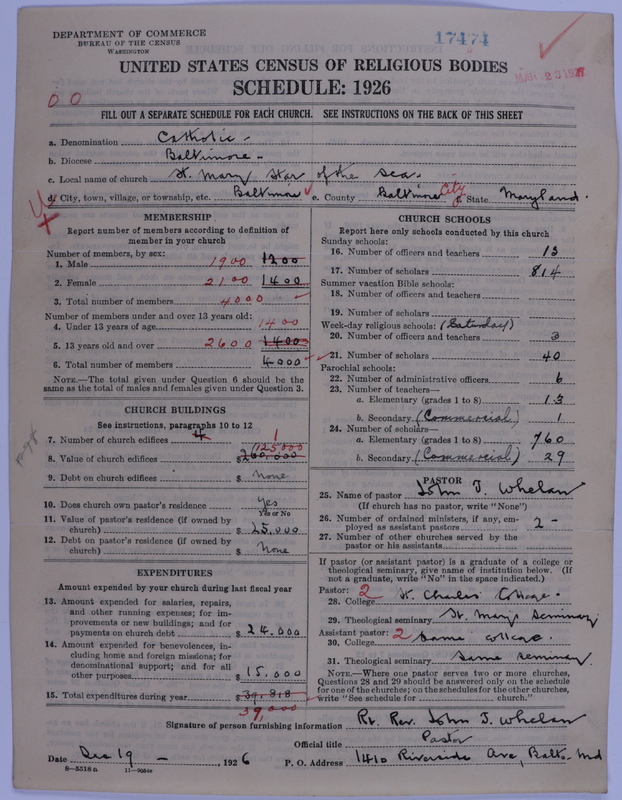 DEPARTMENT OF COMMERCE
BUREAU OF THE CENSUS
WASHINGTON
17474
UNITED STATES CENSUS OF RELIGIOUS BODIES
SCHEDULE: 1926
MAR 23 1927
0 0
FILL OUT A SEPARATE SCHEDULE FOR EACH CHURCH. SEE INSTRUCTIONS ON THE BACK OF THIS SHEET
a. Denomination Catholic
b. Diocese Baltimore
c. Local name of church St. Mary Star of the Sea.
d. City, town, village, or township, etc. Baltimore e. County Baltimore City State Maryland.
MEMBERSHIP
Report number of members according to definition of
member in your church
Number of members, by sex:
1. Male 1900 1200
2. Female 2100 1400
3. Total number of members 4000
Number of members under and over 13 years old:
4. Under 13 years of age 1400
5. 13 years old and over 2600 1400
6. Total number of members 4000
NOTE.—The total given under Question 6 should be the
same as the total of males and females given under Question 3.
CHURCH BUILDINGS
See instructions, paragraphs 10 to 12
7. Number of church edifices 4 1
(125,000
8. Value of church edifices $260,000
9. Debt on church edifices $ None
10. Does church own pastor's residence Yes
Yes or No
11. Value of pastor's residence (if owned by
church) $ 25,000
12. Debt on pastor's residence (if owned by
church) $ None
EXPENDITURES
Amount expended by your church during last fiscal year
13. Amount expended for salaries, repairs,
and other running expenses; for im-
provements or new buildings; and for
payments on church debt $ 24,000
14. Amount expended for benevolences, in-
cluding home and foreign missions; for
denominational support; and for all
other purposes $ 15,000
15. Total expenditures during year $ 39,818
39,000
CHURCH SCHOOLS
Report here only schools conducted by this church
Sunday schools:
16. Number of officers and teachers 13
17. Number of scholars 814
Summer vacation Bible schools:
18. Number of officers and teachers
19. Number of scholars
Week-day religious schools: (Saturday)
20. Number of officers and teachers 3
21. Number of scholars 40
Parochial schools:
22. Number of administrative officers 6
23. Number of teachers—
a. Elementary (grades 1 to 8) 13
b. Secondary (Commercial) 1
24. Number of scholars—
a. Elementary (grades 1 to 8) 760
b. Secondary (Commercial) 29
PASTOR
25. Name of pastor John T. Whelan
(If church has no pastor, write "None")
26. Number of ordained ministers, if any, em-
ployed as assistant pastors 2 -
27. Number of other churches served by the
pastor or his assistants
If pastor (or assistant pastor) is a graduate of a college or
theological seminary, give name of institution below. (If
not a graduate, write "No" in the space indicated.)
Pastor: 2
28. College St. Charles College.
29. Theological seminary St. Mary's Seminary
Assistant pastor: 2
30. College Same college.
31. Theological seminary Same seminary.
NOTE.—Where one pastor serves two or more churches,
Questions 28 and 29 should be answered only on the schedule
for one of the churches; on the schedules for the other churches,
write "See schedule for church."
Signature of person furnishing information Rt. Rev. John T. Whelan
Official title Pastor
Date Dec 19 - , 1926 P. O. Address 1410 Riverside Ave, Balto. Md
8—5318a 11—9054c